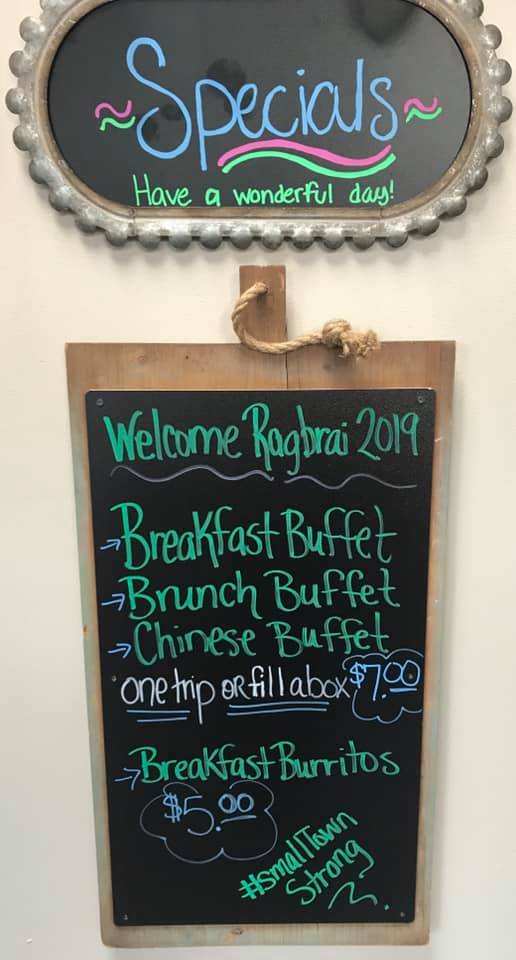 ~Specials~
Have a wonderful day!
Welcome Ragbrai 2019
→Breakfast Buffet
→Brunch Buffet
→Chinese Buffet
one trip or fill a box $7.00
→Breakfast Burritos
$5.00
#smallTown
Strong